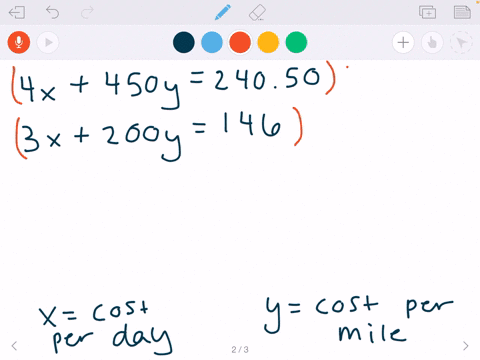 (4x + 450y = 240.50)
(3x + 200y = 146)
x = cost per day
y = cost per mile
2 / 3